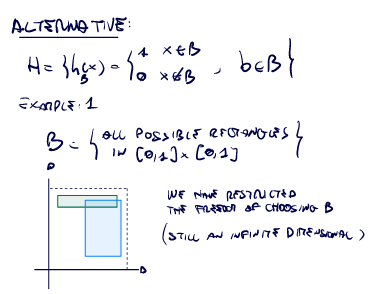 ALTERNATIVE:
H = { h_B(x) = { 1 x ∈ B
0 x ∉ B , b ∈ B }
EXAMPLE: 1
B = { ALL POSSIBLE RECTANGLES
IN [0,1] x [0,1] }
WE HAVE RESTRICTED
THE FREEDOM OF CHOOSING B
(STILL AN INFINITE DIMENSIONAL)